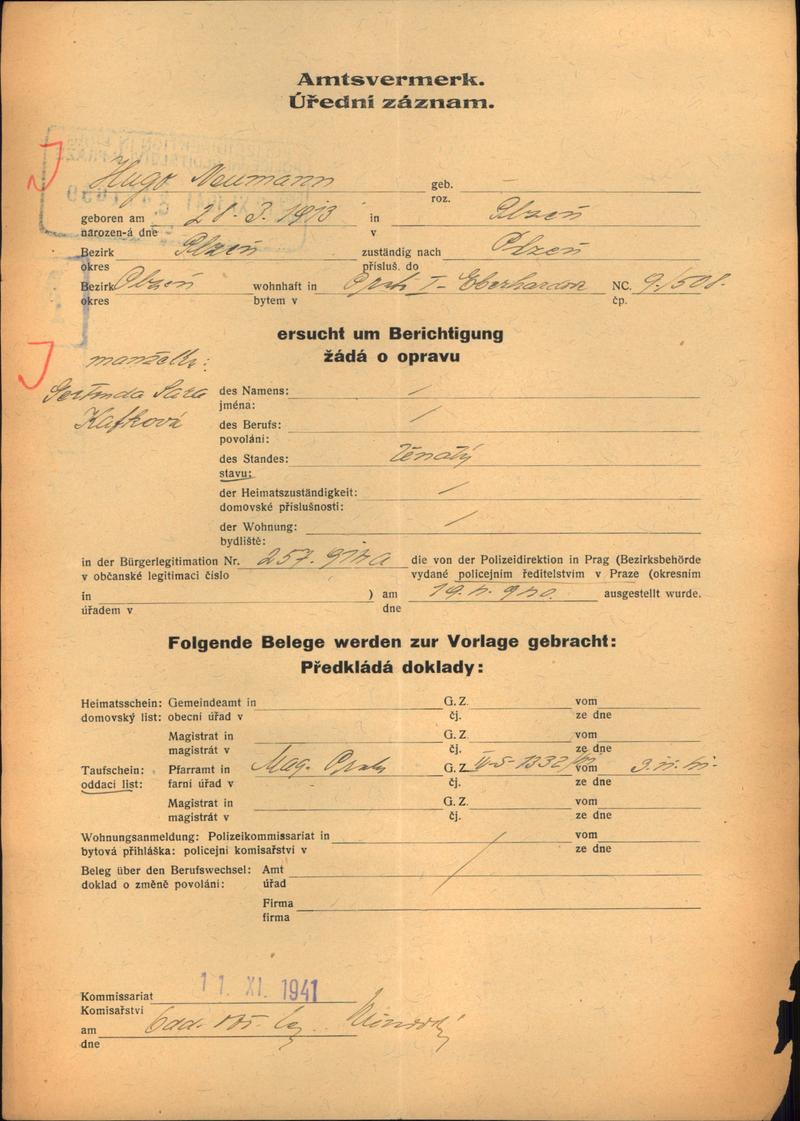 Amtsvermerk.
Úřední záznam.
Hugo Neumann geb.
roz.
geboren am 28. 3. 1913 in Plzeň
narozen-á dne v
Bezirk Plzeň zuständig nach Plzeň
okres přísluš. do
Bezirk Plzeň wohnhaft in I - NC. 9./508.
okres bytem v čp.
ersucht um Berichtigung
žádá o opravu
manželka:
Gertruda Sara
Kafková
des Namens: /
jména:
des Berufs: /
povolání:
des Standes: ženatý
stavu:
der Heimatszuständigkeit: /
domovské příslušnosti:
der Wohnung: /
bydliště:
in der Bürgerlegitimation Nr. die von der Polizeidirektion in Prag (Bezirksbehörde
v občanské legitimaci číslo vydané policejním ředitelstvím v Praze (okresním
in ) am ausgestellt wurde.
úřadem v dne
Folgende Belege werden zur Vorlage gebracht:
Předkládá doklady:
Heimatsschein: Gemeindeamt in G. Z. vom
domovský list: obecní úřad v čj. ze dne
Magistrat in G. Z. vom
magistrát v čj. ze dne
Taufschein: Pfarramt in Mag. G. Z. vom
oddací list: farní úřad v čj. ze dne
Magistrat in G. Z. vom
magistrát v čj. ze dne
Wohnungsanmeldung: Polizeikommissariat in vom
bytová přihláška: policejní komisařství v ze dne
Beleg über den Berufswechsel: Amt
doklad o změně povolání: úřad
Firma
firma
11. XI. 1941
Kommissariat
Komisařství
am
dne